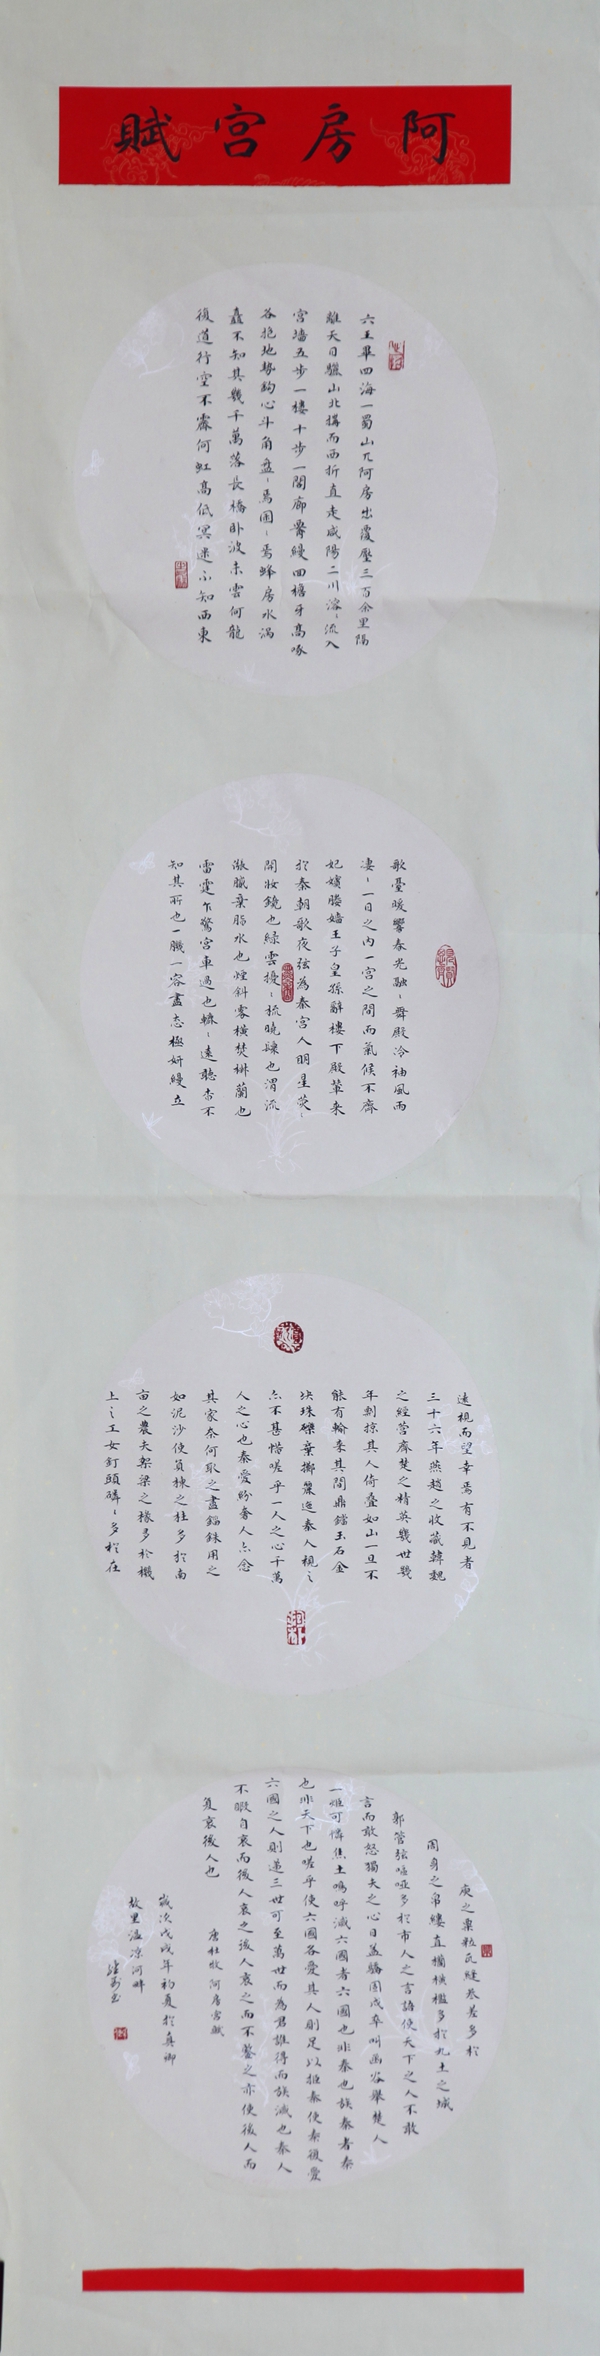 阿房宮賦
六王畢四海一蜀山兀阿房出覆壓三百余里隔
離天日驪山北構而西折直走咸陽二川溶〻流入
宮墻五步一樓十步一閣廊腰縵回檐牙高啄
各抱地勢鉤心斗角盤〻焉囷〻焉蜂房水渦
矗不知其幾千萬落長橋臥波未雲何龍
復道行空不霽何虹高低冥迷不知西東
歌臺暖響春光融〻舞殿冷袖風雨
淒〻一日之內一宮之間而氣候不齊
妃嬪媵嬙王子皇孫辭樓下殿輦來
於秦朝歌夜弦為秦宮人明星熒〻
開妝鏡也綠雲擾〻梳曉鬟也渭流
漲膩棄脂水也煙斜霧橫焚椒蘭也
雷霆乍驚宮車過也轆〻遠聽杳不
知其所也一肌一容盡態極妍縵立
遠視而望幸焉有不見者
三十六年燕趙之收藏韓魏
之經營齊楚之精英幾世幾
年剽掠其人倚疊如山一旦不
能有輸來其間鼎鐺玉石金
塊珠礫棄擲邐迤秦人視之
亦不甚惜嗟乎一人之心千萬
人之心也秦愛紛奢人亦念
其家奈何取之盡錙銖用之
如泥沙使負棟之柱多於南
亩之農夫架梁之椽多於機
上之工女釘頭磷〻多於在
庾之粟粒瓦縫參差多於
周身之帛縷直欄橫檻多於九土之城
郭管弦嘔啞多於市人之言語使天下之人不敢
言而敢怒獨夫之心日益驕固戍卒叫函谷舉楚人
一炬可憐焦土嗚呼滅六國者六國也非秦也族秦者秦
也非天下也嗟乎使六國各愛其人則足以拒秦使秦復愛
六國之人則遞三世可至萬世而為君誰得而族滅也秦人
不暇自哀而後人哀之後人哀之而不鑒之亦使後人而
復哀後人也
唐杜牧阿房宮賦
歲次戊戌年初夏於真鄉
故里溫涼河畔